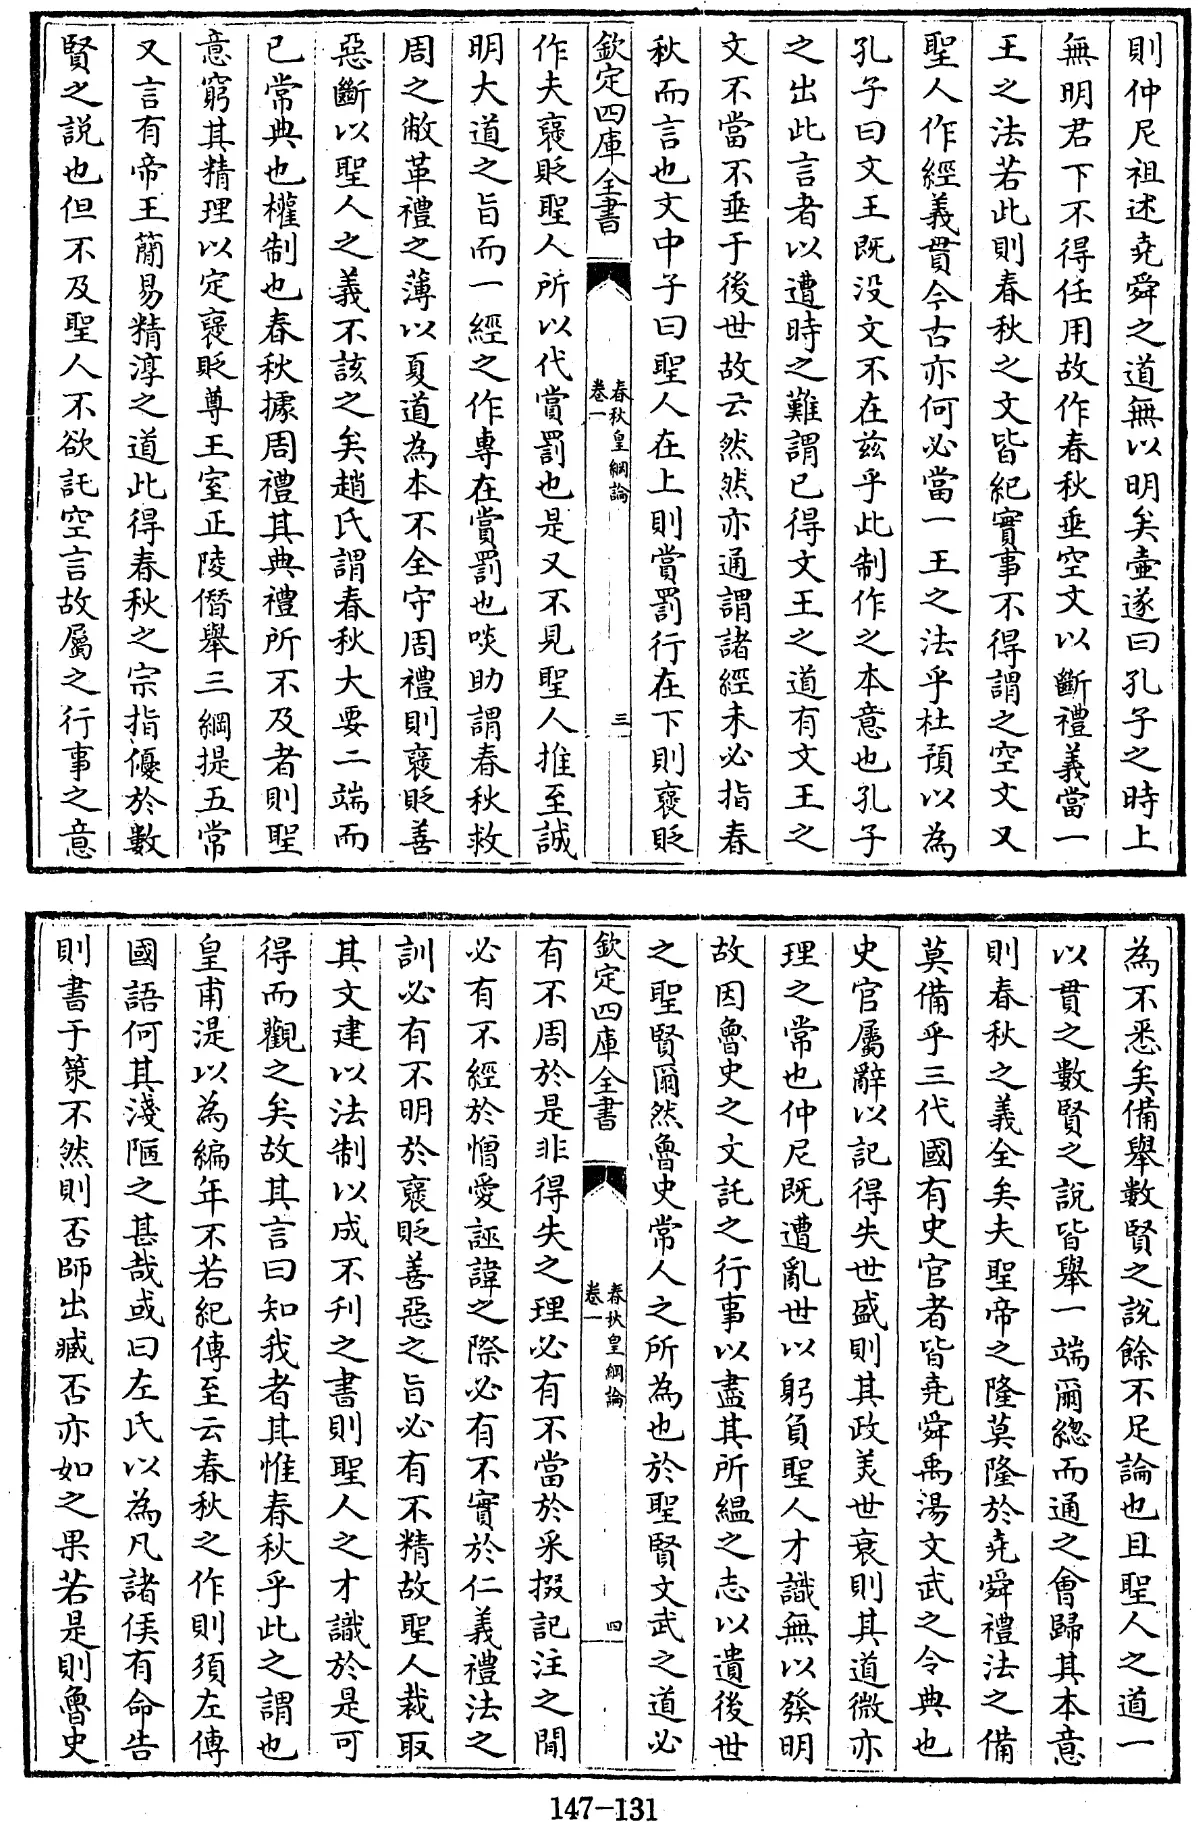 則仲尼祖述堯舜之道無以明矣壷遂曰孔子之時上
無明君下不得任用故作春秋垂空文以斷禮義當一
王之法若此則春秋之文皆紀實事不得謂之空文又
聖人作經義貫今古亦何必當一王之法乎杜預以為
孔子曰文王既没文不在兹乎此制作之本意也孔子
之出此言者以遭時之難謂已得文王之道有文王之
文不當不垂于後世故云然然亦通謂諸經未必指春
秋而言也文中子曰聖人在上則賞罰行在下則襃貶
欽定四庫全書
春秋皇綱論
卷一
三
作夫襃貶聖人所以代賞罰也是又不見聖人推至誠
明大道之旨而一經之作專在賞罰也啖助謂春秋救
周之敝革禮之薄以夏道為本不全守周禮則襃貶善
惡斷以聖人之義不該之矣趙氏謂春秋大要二端而
已常典也權制也春秋據周禮其典禮所不及者則聖
意窮其精理以定襃貶尊王室正陵僭舉三綱提五常
又言有帝王簡易精淳之道此得春秋之宗指優於數
賢之説也但不及聖人不欲託空言故屬之行事之意
為不悉矣備舉數賢之説餘不足論也且聖人之道一
以貫之數賢之説皆舉一端爾總而通之會歸其本意
則春秋之義全矣夫聖帝之隆莫隆於堯舜禮法之備
莫備乎三代國有史官者皆堯舜禹湯文武之令典也
史官屬辭以記得失世盛則其政美世衰則其道微亦
理之常也仲尼既遭亂世以躬負聖人才識無以發明
故因魯史之文託之行事以盡其所緼之志以遺後世
之聖賢爾然魯史常人之所為也於聖賢文武之道必
欽定四庫全書
春秋皇綱論
卷一
四
有不周於是非得失之理必有不當於采掇記注之間
必有不經於憎愛誣諱之際必有不實於仁義禮法之
訓必有不明於襃貶善惡之旨必有不精故聖人裁取
其文建以法制以成不刊之書則聖人之才識於是可
得而觀之矣故其言曰知我者其惟春秋乎此之謂也
皇甫湜以為編年不若紀傳至云春秋之作則須左傳
國語何其淺陋之甚哉或曰左氏以為凡諸侯有命告
則書于策不然則否師出臧否亦如之果若是則魯史
147-131